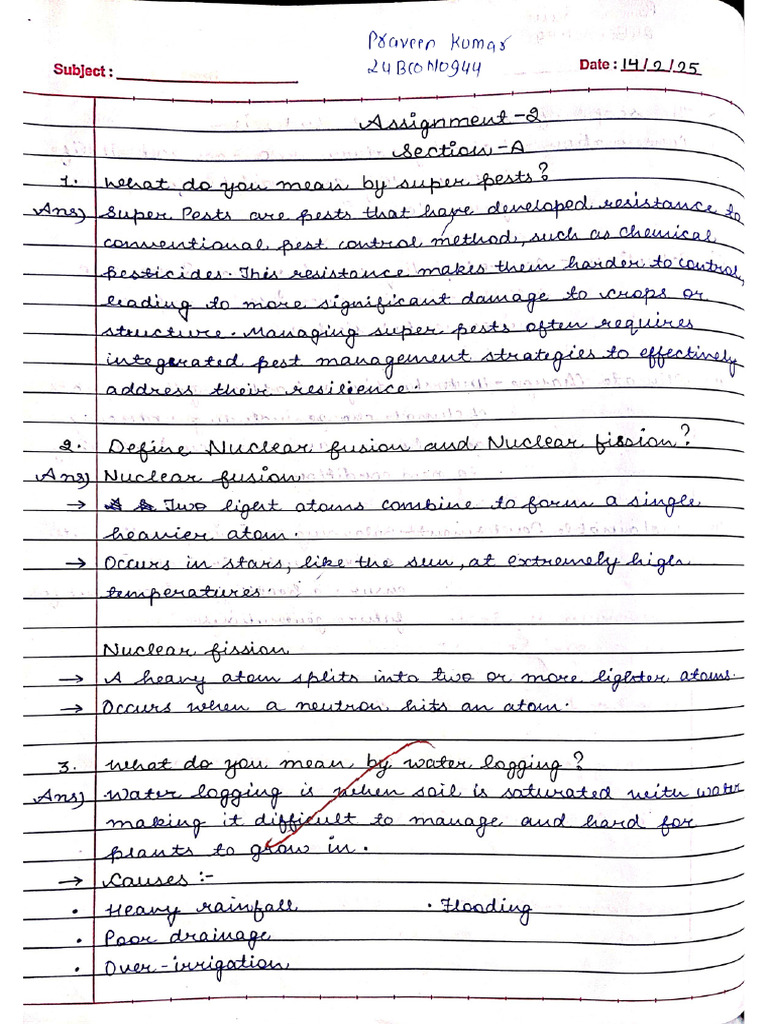 Praveen Kumar
Subject : 24BCON0944 Date : 14/2/25
Assignment-2
Section-A
1. What do you mean by super pests?
Ans) Super Pests are pests that have developed resistance to
conventional pest control method, such as chemical
pesticides. This resistance makes them harder to control,
leading to more significant damage to crops or
structure. Managing super pests often requires
integrated pest management strategies to effectively
address their resilience.
2. Define Nuclear fusion and Nuclear fission?
Ans) Nuclear fusion
→ Two light atoms combine to form a single
heavier atom.
→ Occurs in stars, like the sun, at extremely high
temperatures.
Nuclear fission
→ A heavy atom splits into two or more lighter atoms.
→ Occurs when a neutron hits an atom.
3. What do you mean by water logging?
Ans) Water logging is when soil is saturated with water
making it difficult to manage and hard for
plants to grow in.
→ Causes :-
• Heavy rainfall • Flooding
• Poor drainage
• Over-irrigation